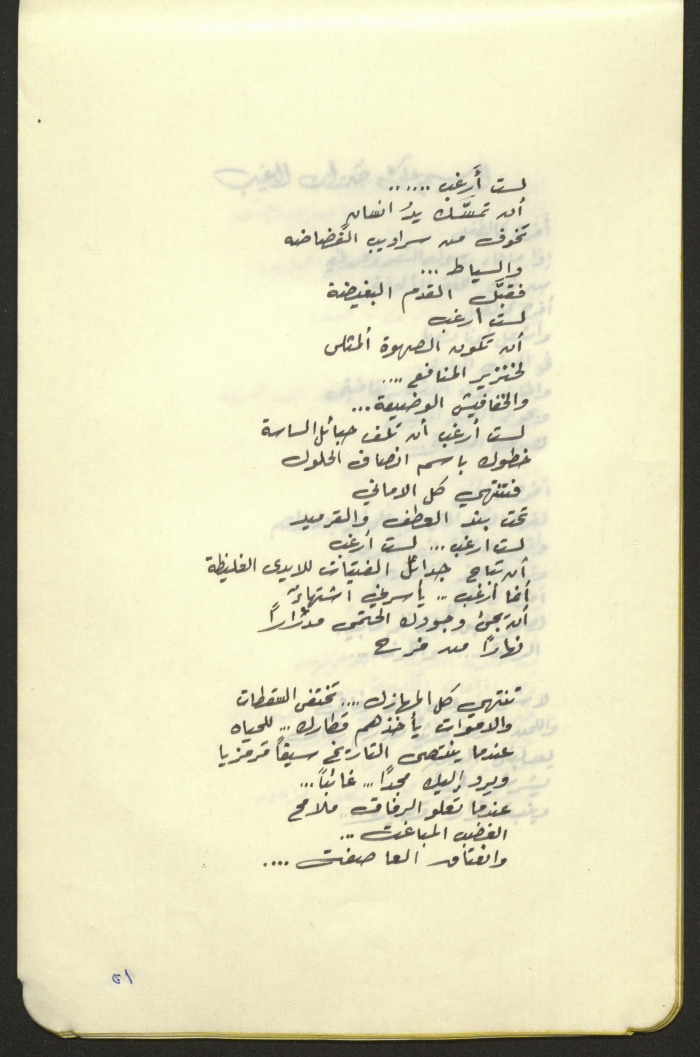 لست أرغب ......
أن تمسّك يدُ انسانٍ
تخوف من سراديب الفضاضه
والسياط ...
فقبّل القدم البغيضة
لست أرغب
أن تكون الصهوة المثلى
لخنزير المنافع ....
والخفافيش الوضيعة ...
لست أرغب أن تلف حبائل الساسة
خطوك باسم انصاف الحلول
فتنتهي كل الاماني
تحت بند العطف والقرميد
لست ارغب ... لست أرغب
أن تباح جدائل الفتيات للايدى الغليظة
أنما أرغب .. يأسرني اشتهاءٌ
أن يجئ وجودك الحتمى مدرارًا
نهارًا من فرح
تنتهي كل المهازل .... تختفى السقطات
والاموات يأخذهم قطارك ... للحياه
عندما ينتصى التاريخ سيفًا قرمزيا
ويرد إليك مجدًا ... غائبًا ...
عندما تعلو الرفاق ملامح
الغضب المباغت ...
وانعتاق العاصفة ....
٥١